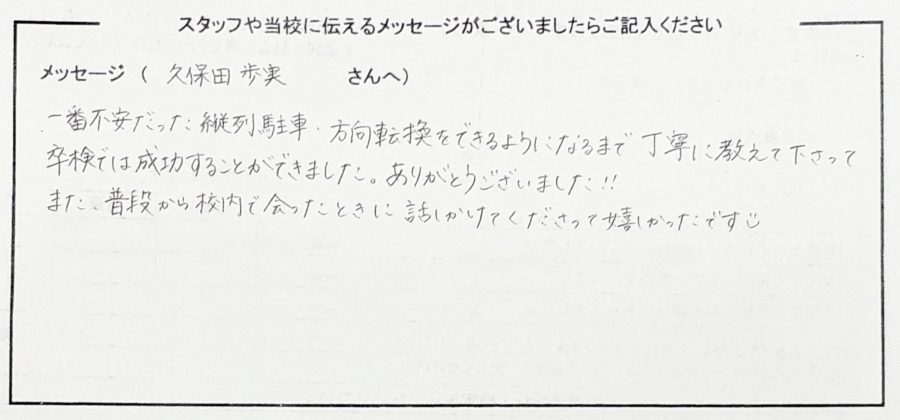 スタッフや当校に伝えるメッセージがございましたらご記入ください
メッセージ ( 久保田 歩実 さんへ)
一番不安だった縦列駐車・方向転換をできるようになるまで丁寧に教えて下さって
卒検では成功することができました。ありがとうございました!!
また、普段から校内で会ったときに話しかけてくださって嬉しかったです☺